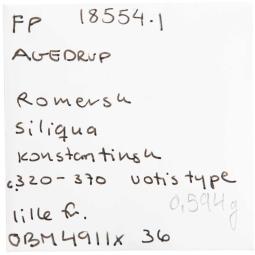 FP 18554.1
AGEDRUP
Romersk
siliqua
konstantinsk
c.320-370 votis type
0,594g
lille fr.
OBM4911x 36